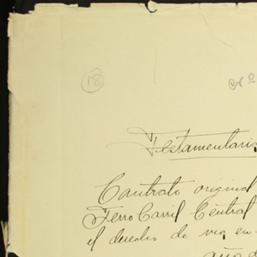 18
Testamentaria
Contrato original
Ferro Carril Central
el derecho de via en
año d